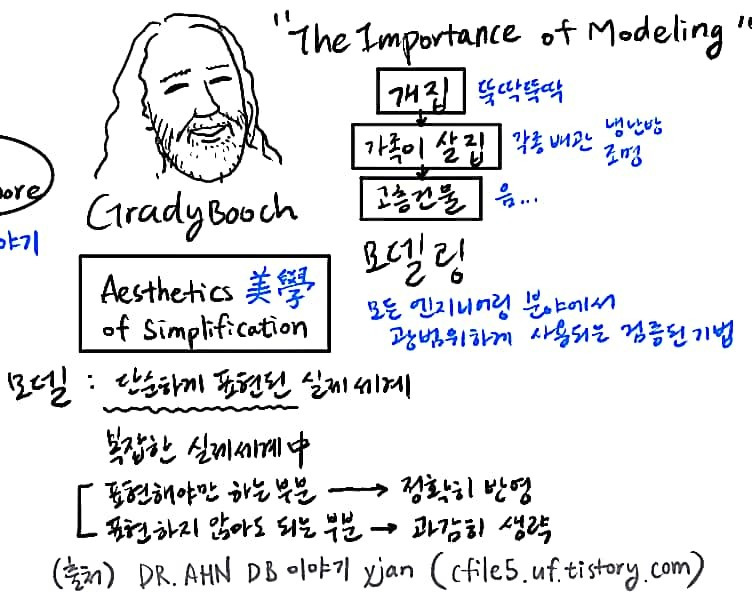 "The Importance of Modeling"
개집 뚝딱뚝딱
가족이 살집 각종 배관 냉난방
조명
고층건물 음...
ore
야기
Grady Booch
모델링
Aesthetics 美學
of Simplification
모든 엔지니어링 분야에서
광범위하게 사용되는 검증된 기법
모델 : 단순하게 표현된 실제세계
복잡한 실제세계中
표현해야만 하는 부분 → 정확히 반영
표현하지 않아도 되는 부분 → 과감히 생략
(출처) DR.AHN DB 이야기 xjan (cfile5.uf.tistory.com)